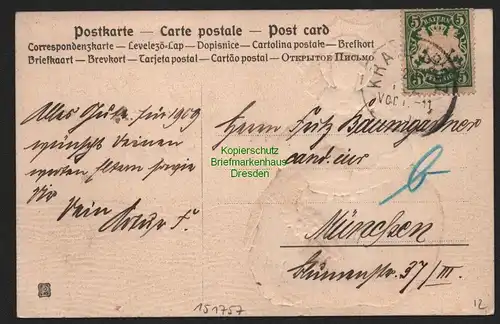 Postkarte – Carte postale – Post card
Correspondenzkarte – Levelező-Lap – Dopisnice – Cartolina postale – Brefkort
Briefkaart – Brevkort – Tarjeta postal – Cartão postal – Открытое Письмо
BAYERN
5 5
KRA
VOR
Alles Gute für 1909
wünscht Deinen
werten Eltern sowie
Dir
Dein Artur F.
Herrn Fritz Baumgartner
cand. iur
b
München
Blumenstr. 37/III.
Kopierschutz
Briefmarkenhaus
Dresden
151757
12